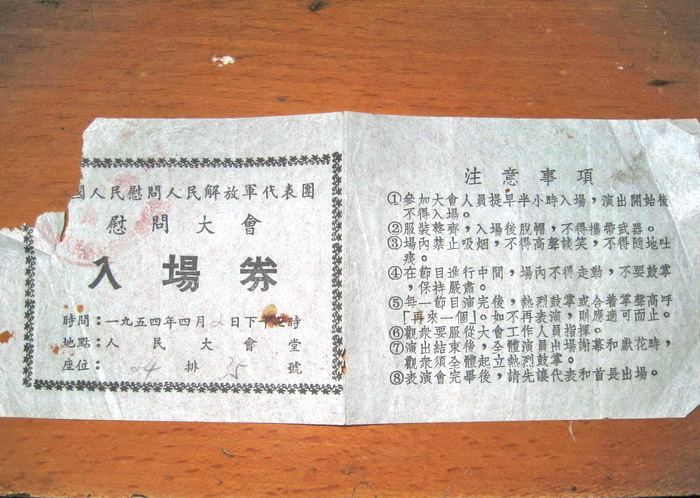 國人民慰問人民解放軍代表團
慰問大會
入場券
時間：一九五四年四月2日下午七時
地點：人民大會堂
座位：24排25號
注意事項
①參加大會人員提早半小時入場，演出開始後
不得入場。
②服裝整齊，入場後脫帽，不得攜帶武器。
③場內禁止吸烟，不得高聲談笑，不得隨地吐
痰。
④在節目進行中間，場內不得走動，不要鼓掌
，保持嚴肅。
⑤每一節目演完後，熱烈鼓掌或合着掌聲高呼
「再來一個」。如不再表演，則應適可而止。
⑥觀衆要服從大會工作人員指揮。
⑦演出結束後，全體演員出場謝幕和獻花時，
觀衆須全體起立熱烈鼓掌。
⑧表演會完畢後，請先讓代表和首長出場。